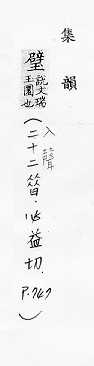 集韻
璧說文瑞玉圜也(入聲二十二昔·必益切. P.747)